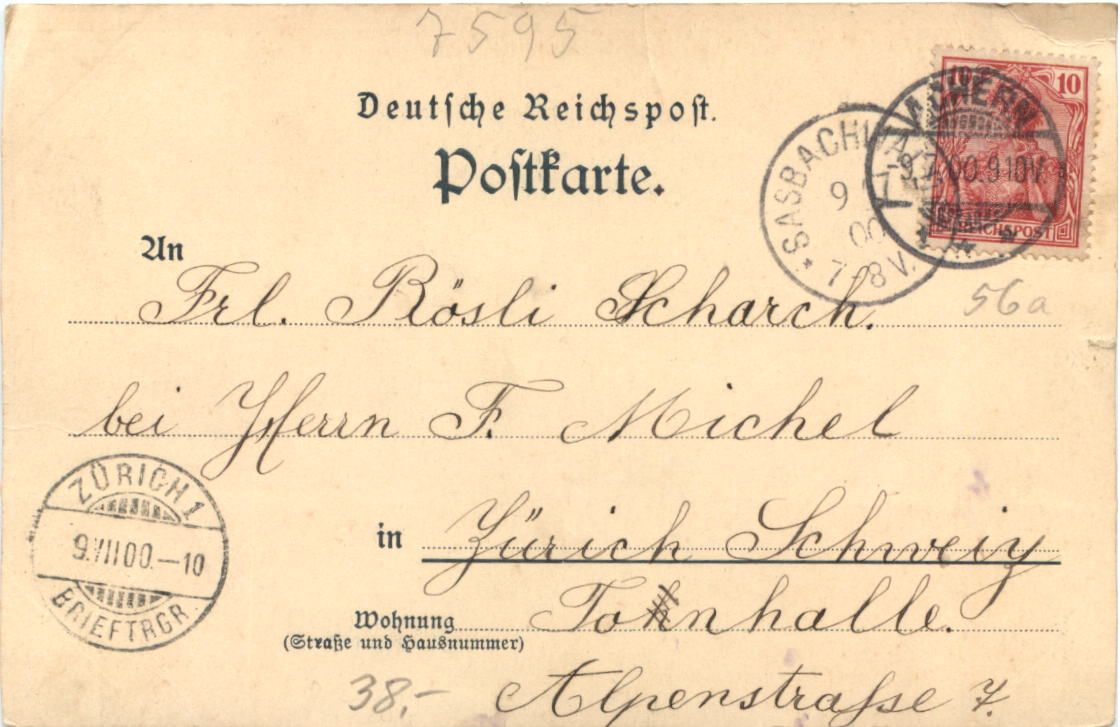 7595
Deutsche Reichspost.
Postkarte.
10 10
REICHSPOST
ACHERN
-9.7.00.9-10V.
* SASBACHWA
9 7
00
7-8 V.
56a
An
Frl. Rösli Scharch.
bei Herrn F. Michel
in Zürich Schweiz
Wohnung
(Straße und Hausnummer)
Tonhalle.
Alpenstrasse 7.
ZÜRICH 1
9.VII.00.–10
BRIEFTRGR.
38.-